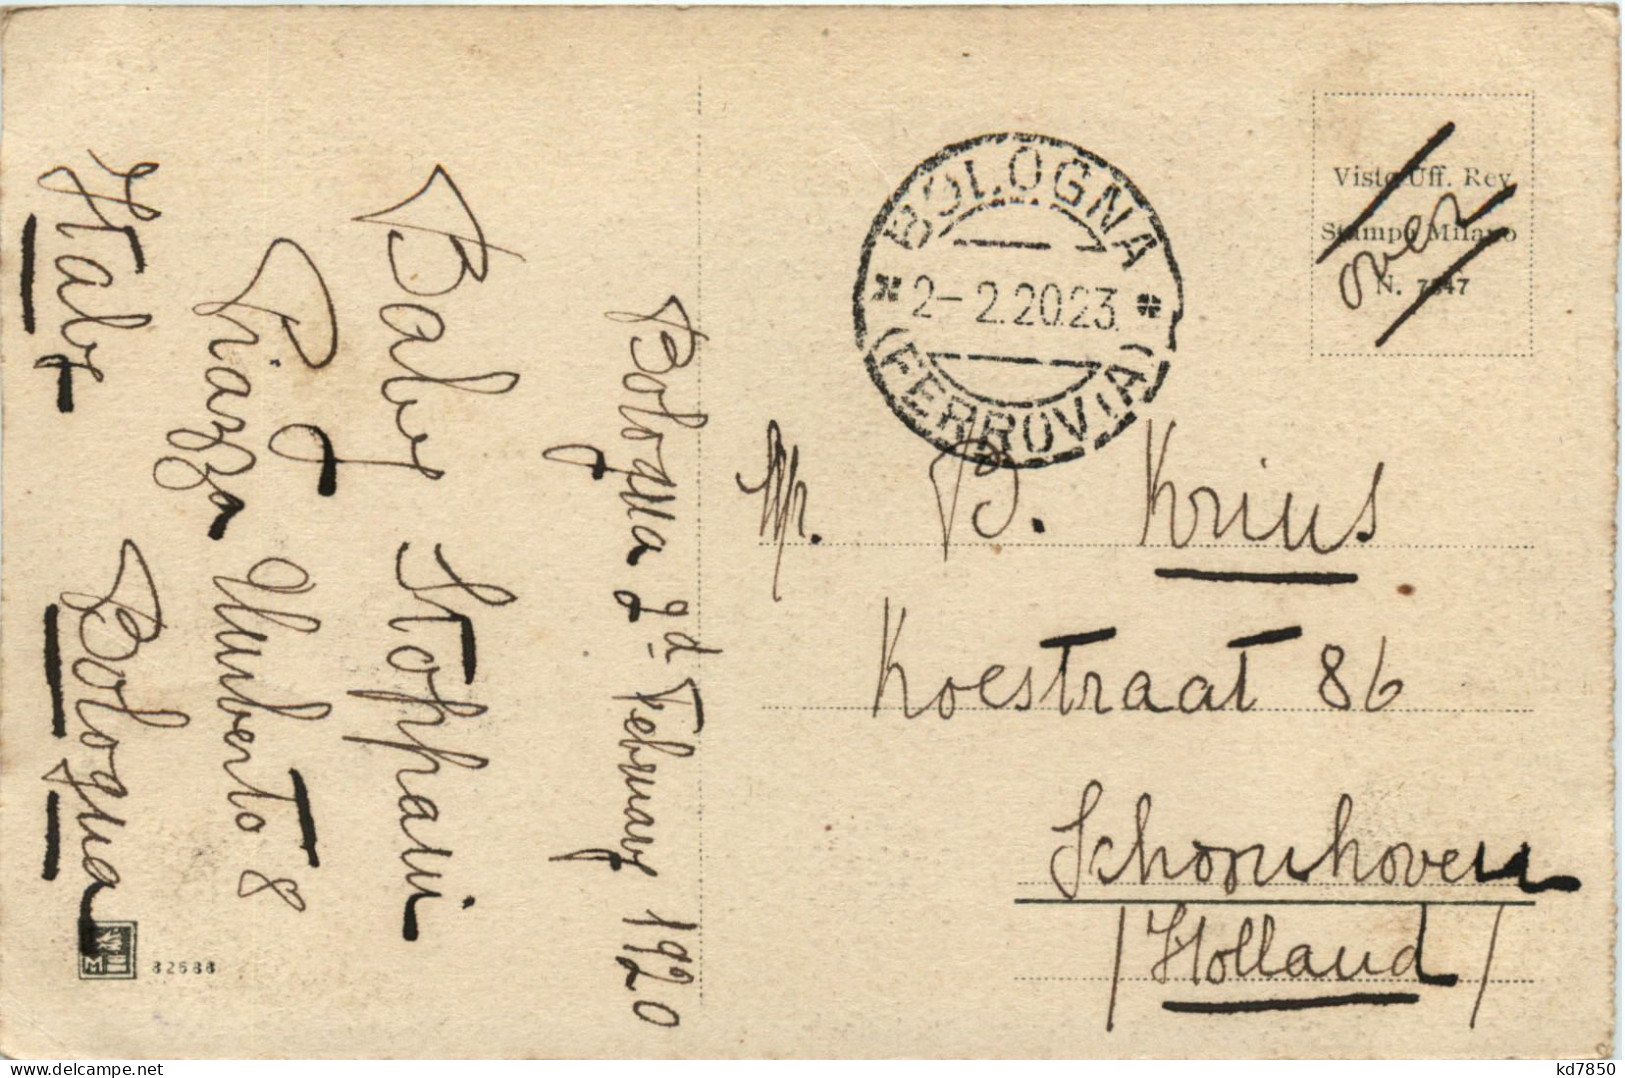 Bologna 2d February 1920
Baby Stoppani
Piazza Umberto 8
Bologna
Italy
82688
BOLOGNA
2-2.20.23
(FERROVIA)
Visto Uff. Rev.
Stampa Milano
N. 7347
over
Mr. B. Krius
Koestraat 86
Schoonhoven
/Holland/
kd7850